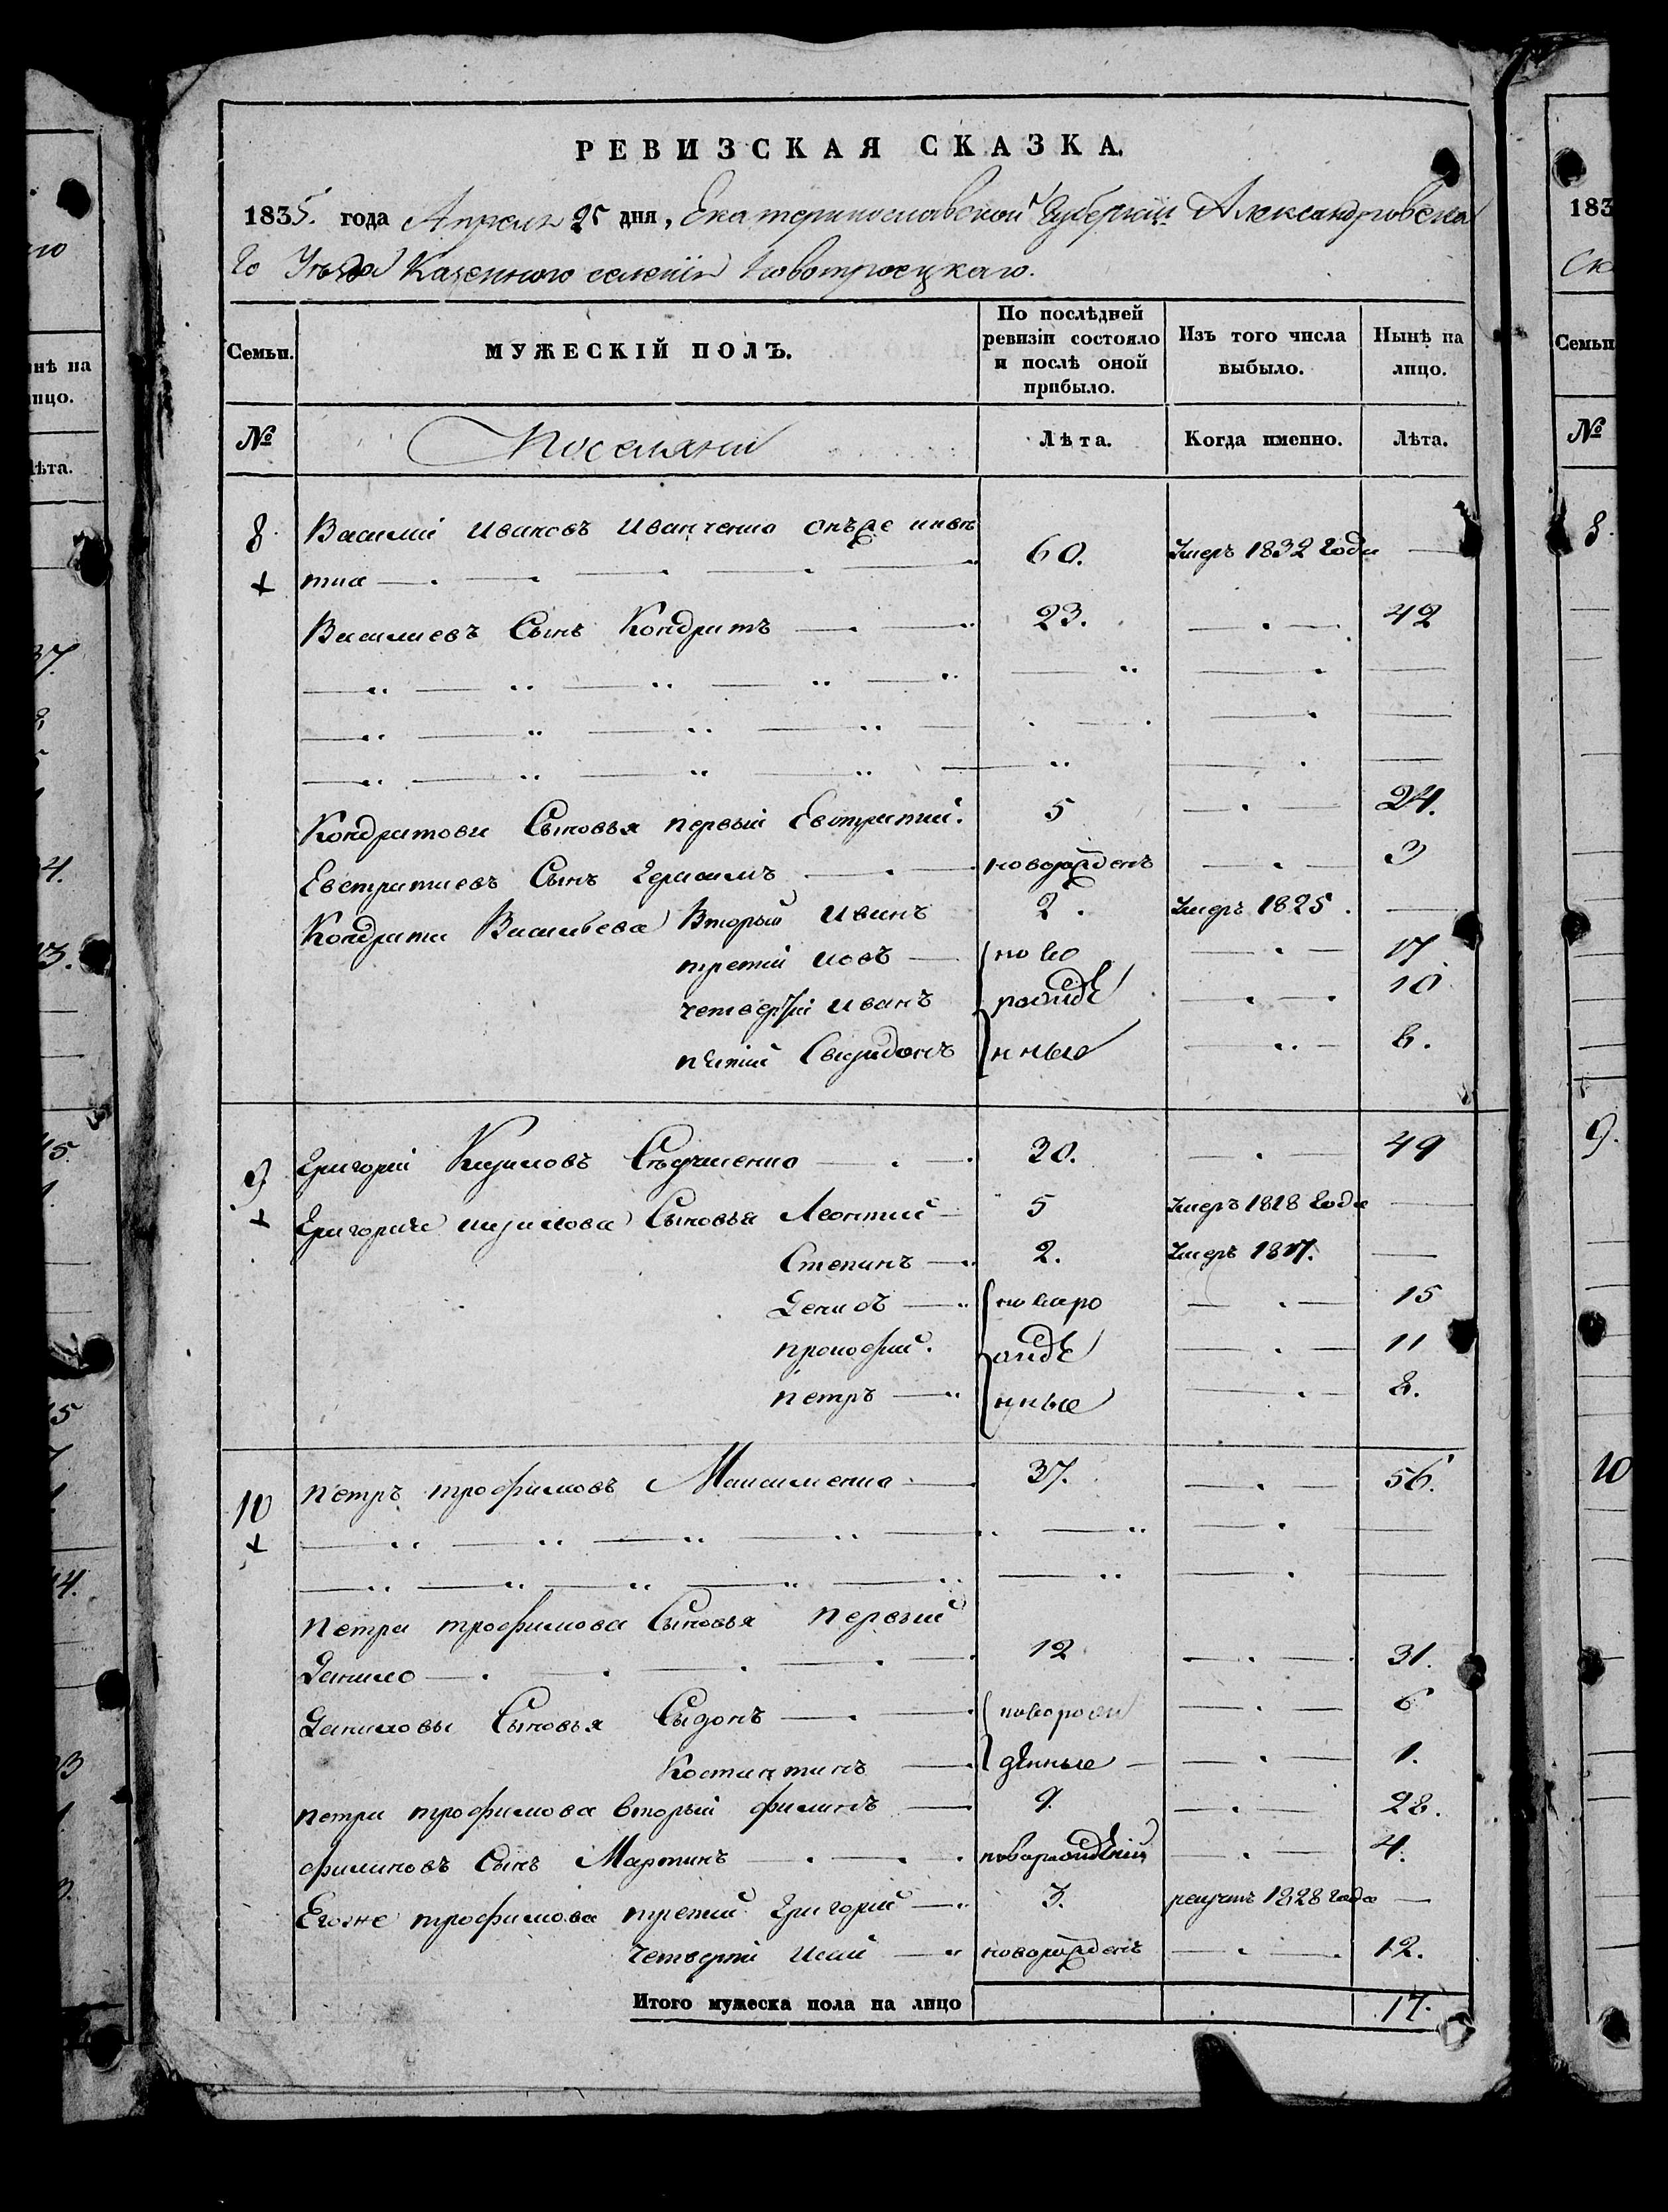 РЕВИЗСКАЯ СКАЗКА.
1835. года Апреля 25 дня, Екатеринославской Губернии Александровска
го Уѣзда Казенного селения Новотроецкаго.
Семьи. МУЖЕСКІЙ ПОЛЪ. По послѣдней ревизіи состояло и послѣ оной прибыло. Изъ того числа выбыло. Нынѣ на лицо.
№ Поселяни Лѣта. Когда именно. Лѣта.
8 Василий Ивановъ Иванченко
60. Умеръ 1832 Года
Василиевъ Сынъ Кондратъ 23. 42
Кондратови Сыновья первый Евстратий. 5 24.
Евстратиевъ Сынъ Герасимъ новорожденъ 3
Кондрата Васильева Вторый Иванъ 2. Умеръ 1825.
третий Иовъ ново 17
четвертий Иванъ рожде 10
пятий Свиридонъ нные 8.
9 Григорий Климовъ 30. 49
Григория Климова Сыновья Леонтий 5 Умеръ 1818 Года
Степанъ 2. Умеръ 1817.
Денисъ новоро 15
прокофий. жде 11
петръ нные 8.
10 петръ трофимовъ Максименко 37. 56.
петра трофимова Сыновья первый
Данило 12 31.
Даниловы Сыновья Сидоръ новорож 6
Костантинъ денные 1.
петра трофимова вторый филипъ 9. 28.
филиповъ Сынъ Мартинъ новорожденній 4.
Егоже трофимова третий Григорий 3. рекрутъ 1828 года
четвертий Исай новорожденъ 12.
Итого мужеска пола на лицо 17.
183
Семьи
№
8.
9.
10